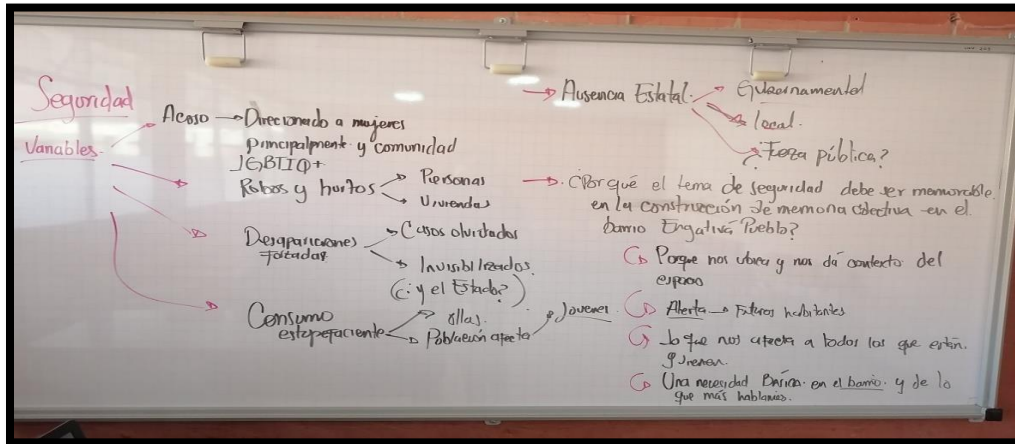 Seguridad
Variables.
Acoso → Direcionado a mujeres
principalmente y comunidad
LGBTIQ+
Robos y hurtos → Personas
→ Viviendas
Desapariciones
Forzadas
→ Casos olvidados
→ Invisibilizados.
(¿y el Estado?)
Consumo
estupefaciente
→ ollas.
→ Población afecta → Jovenes.
→ Ausencia Estatal. → Gubernamental
→ local.
→ ¿Feza pública?
→ ¿Por qué el tema de seguridad debe ser memorable
en la construcción de memoria colectiva en el
barrio Engativá Pueblo?
Porque nos ubica y nos dá contexto del
espacio
Alerta → Futuros habitantes
Lo que nos afecta a todos los que están.
y vienen.
Una necesidad Básica. en el barrio. y de lo
que más hablamos.